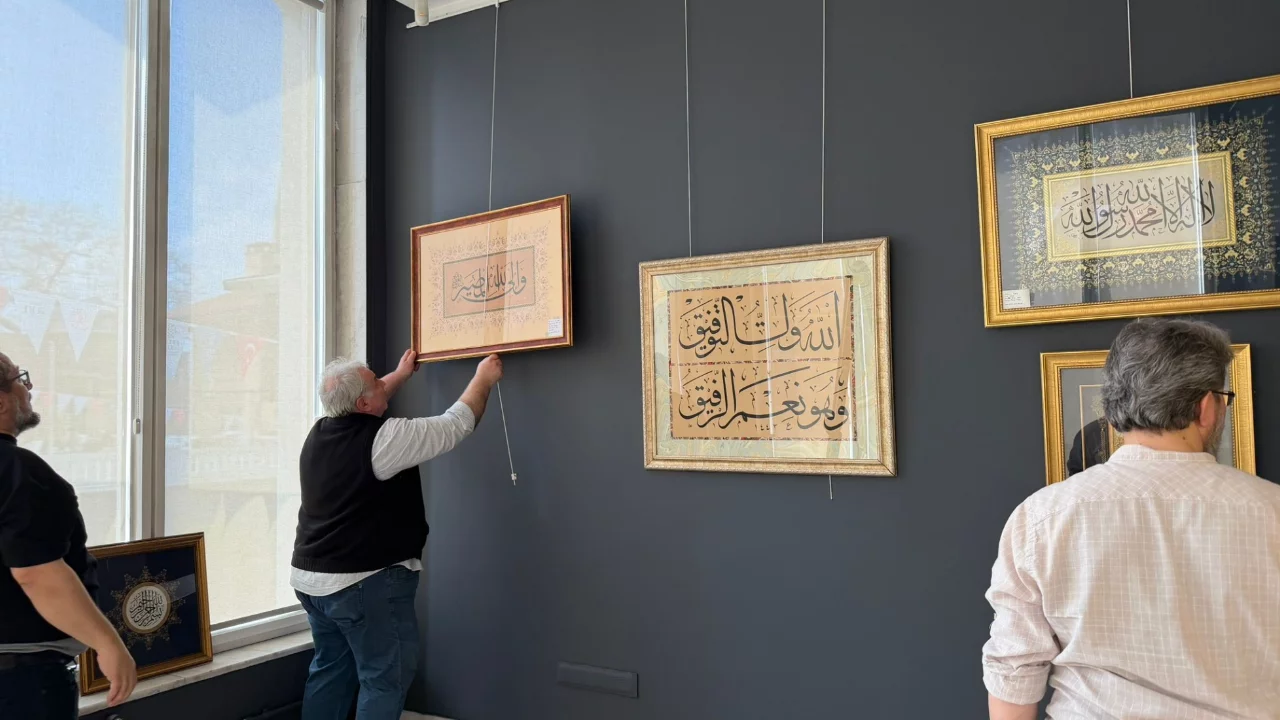 وإلى الله المصير
الله ولي التوفيق
وهو نعم الرفيق
لا إله إلا الله محمد رسول الله